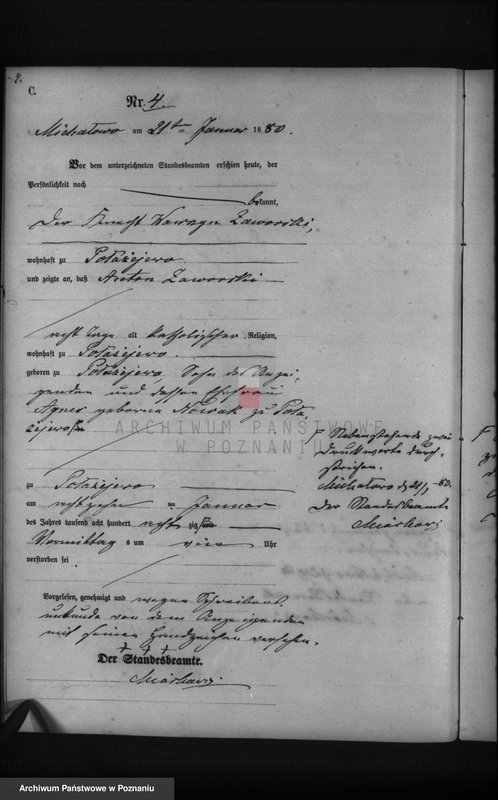 4.
C.
Nr. 4.
Michałowo am 21ten Januar 1880.
Vor dem unterzeichneten Standesbeamten erschien heute, der
Persönlichkeit nach
bekannt,
Der Knecht Wawrzyn Zaworski,
wohnhaft zu Połażejewo
und zeigte an, daß Anton Zaworski
acht Tage alt katholischer Religion,
wohnhaft zu Połażejewo
geboren zu Połażejewo, Sohn des Anzei-
genden und dessen Ehefrau
Agnes geborene Nowak zu Poła-
żejewo
ARCHIWUM PAŃSTWOWE
W POZNANIU
Nebenstehende zwei
Druckworte durch-
strichen.
Michałowo d. 21/1. 80.
Der Standesbeamte
zu Połażejewo
am achtzehn ten Januar
des Jahres tausend acht hundert acht zig und
Vormittag s um vier Uhr
verstorben sei
Vorgelesen, genehmigt und wegen Schreibens-
unkunde von dem Anzeigenden
mit seinen Handzeichen versehen.
+ + +
Der Standesbeamte.
Archiwum Państwowe w Poznaniu
Archiwum Państwowe w Poznaniu